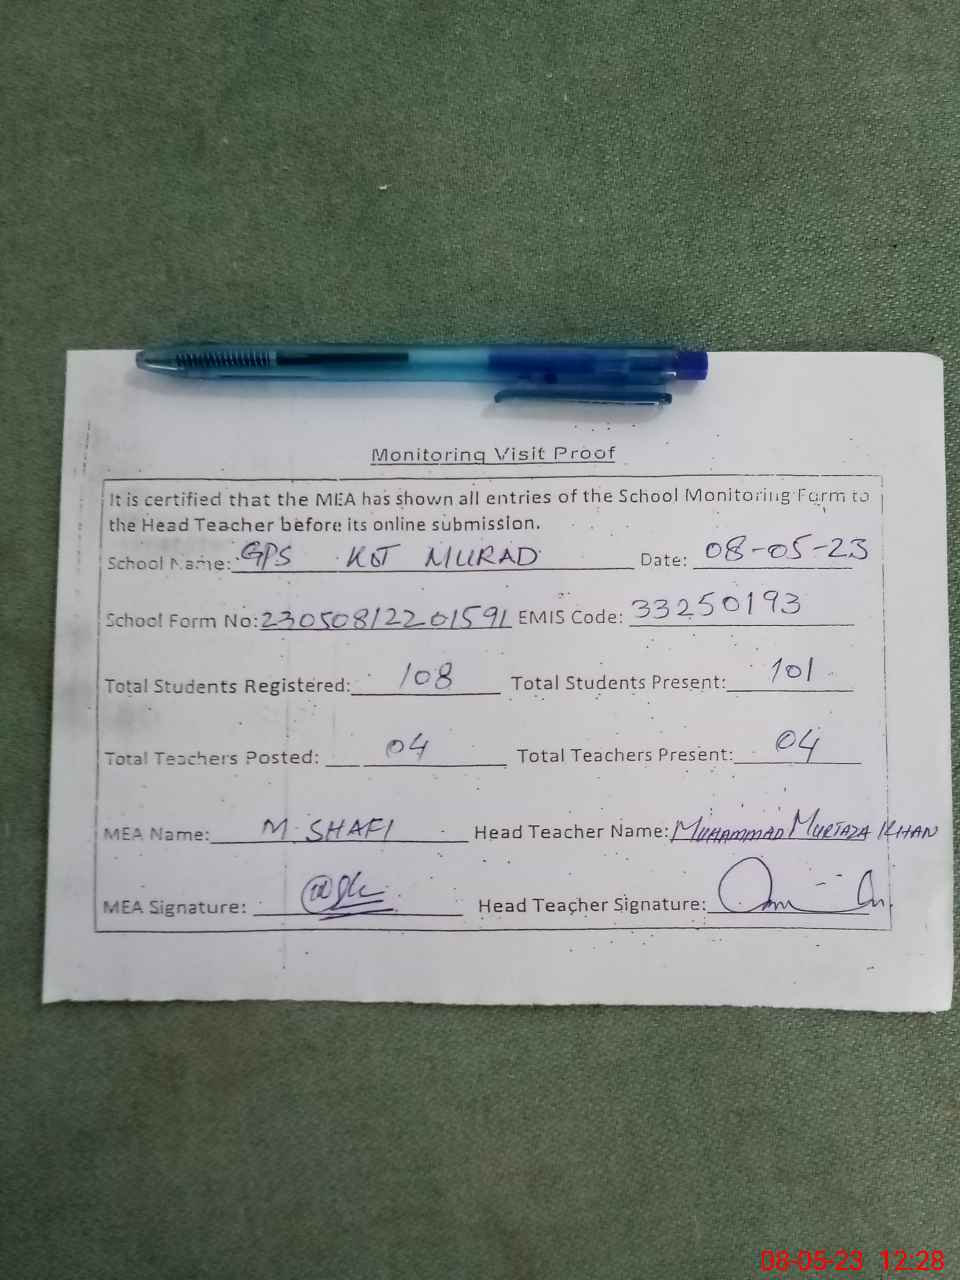 Monitoring Visit Proof
It is certified that the MEA has shown all entries of the School Monitoring Form to
the Head Teacher before its online submission.
School Name: GPS KOT MURAD Date: 08-05-23
School Form No: 230508122201591 EMIS Code: 33250193
Total Students Registered: 108 Total Students Present: 101
Total Teachers Posted: 04 Total Teachers Present: 04
MEA Name: M. SHAFI Head Teacher Name: MUHAMMAD MURTAZA KHAN
MEA Signature: Head Teacher Signature:
08-05-23 12:28